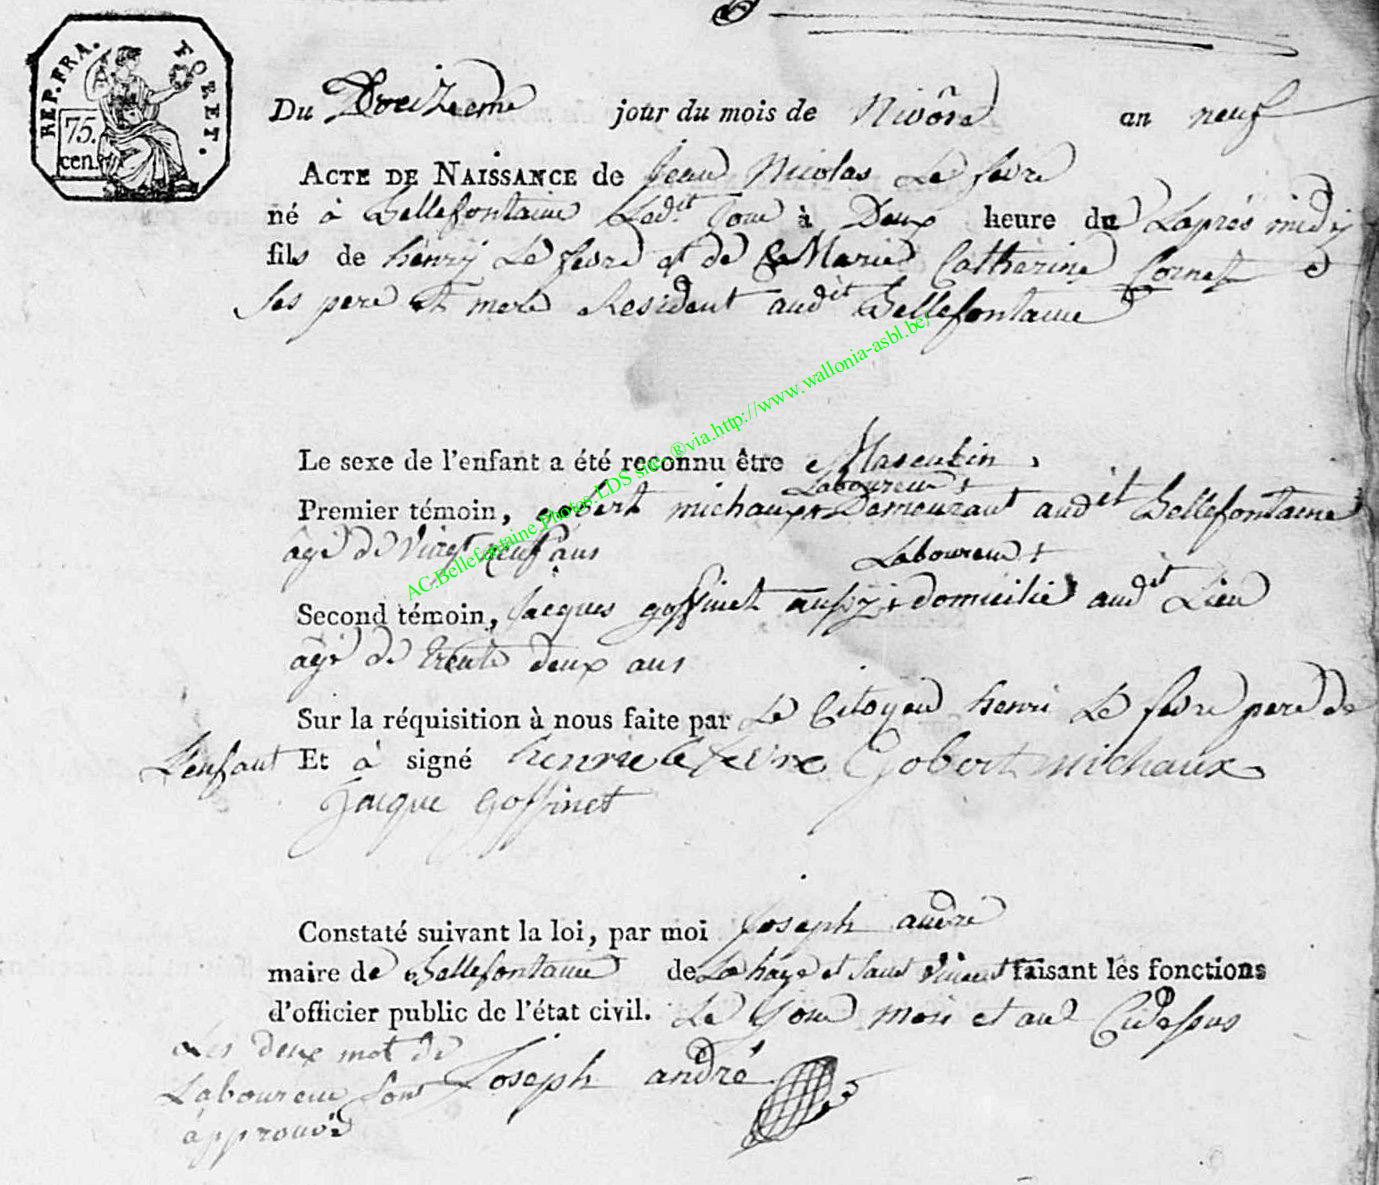 REP. FRA. POZET.
75. cen.
Du Treizeme jour du mois de Nivôse an neuf
ACTE DE NAISSANCE de Jean Nicolas Le fevre
né à Bellefontaine Ledit Jour à Deux heure du Laprés midy
fils de henry Le fevre et de Marie Catherine Cornet
ses pere et mere Resident audit Bellefontaine
Le sexe de l'enfant a été reconnu être Masculin
Laboureur
Premier témoin, gobert michaux Demeurant audit Bellefontaine
âgé de Vingt neuf ans
Laboureur
Second témoin, Jacques goffinet aussy domicilié audit Lieu
âgé de trente deux ans
Sur la réquisition à nous faite par Le Citoyen henri Le fevre pere de
L'enfant Et à signé henri le fevre Gobert michaux
Jaque Goffinet
Constaté suivant la loi, par moi Joseph andre
maire de Bellefontaine de Lahage et Saint Vincent faisant les fonctions
d'officier public de l'état civil. Le Jour mois et an Cidessus
Les deux mot de Joseph andré
Laboureur sont
approuvé
AC.Bellefontaine.Photos.LDS sites®via.http://www.wallonia-asbl.be/